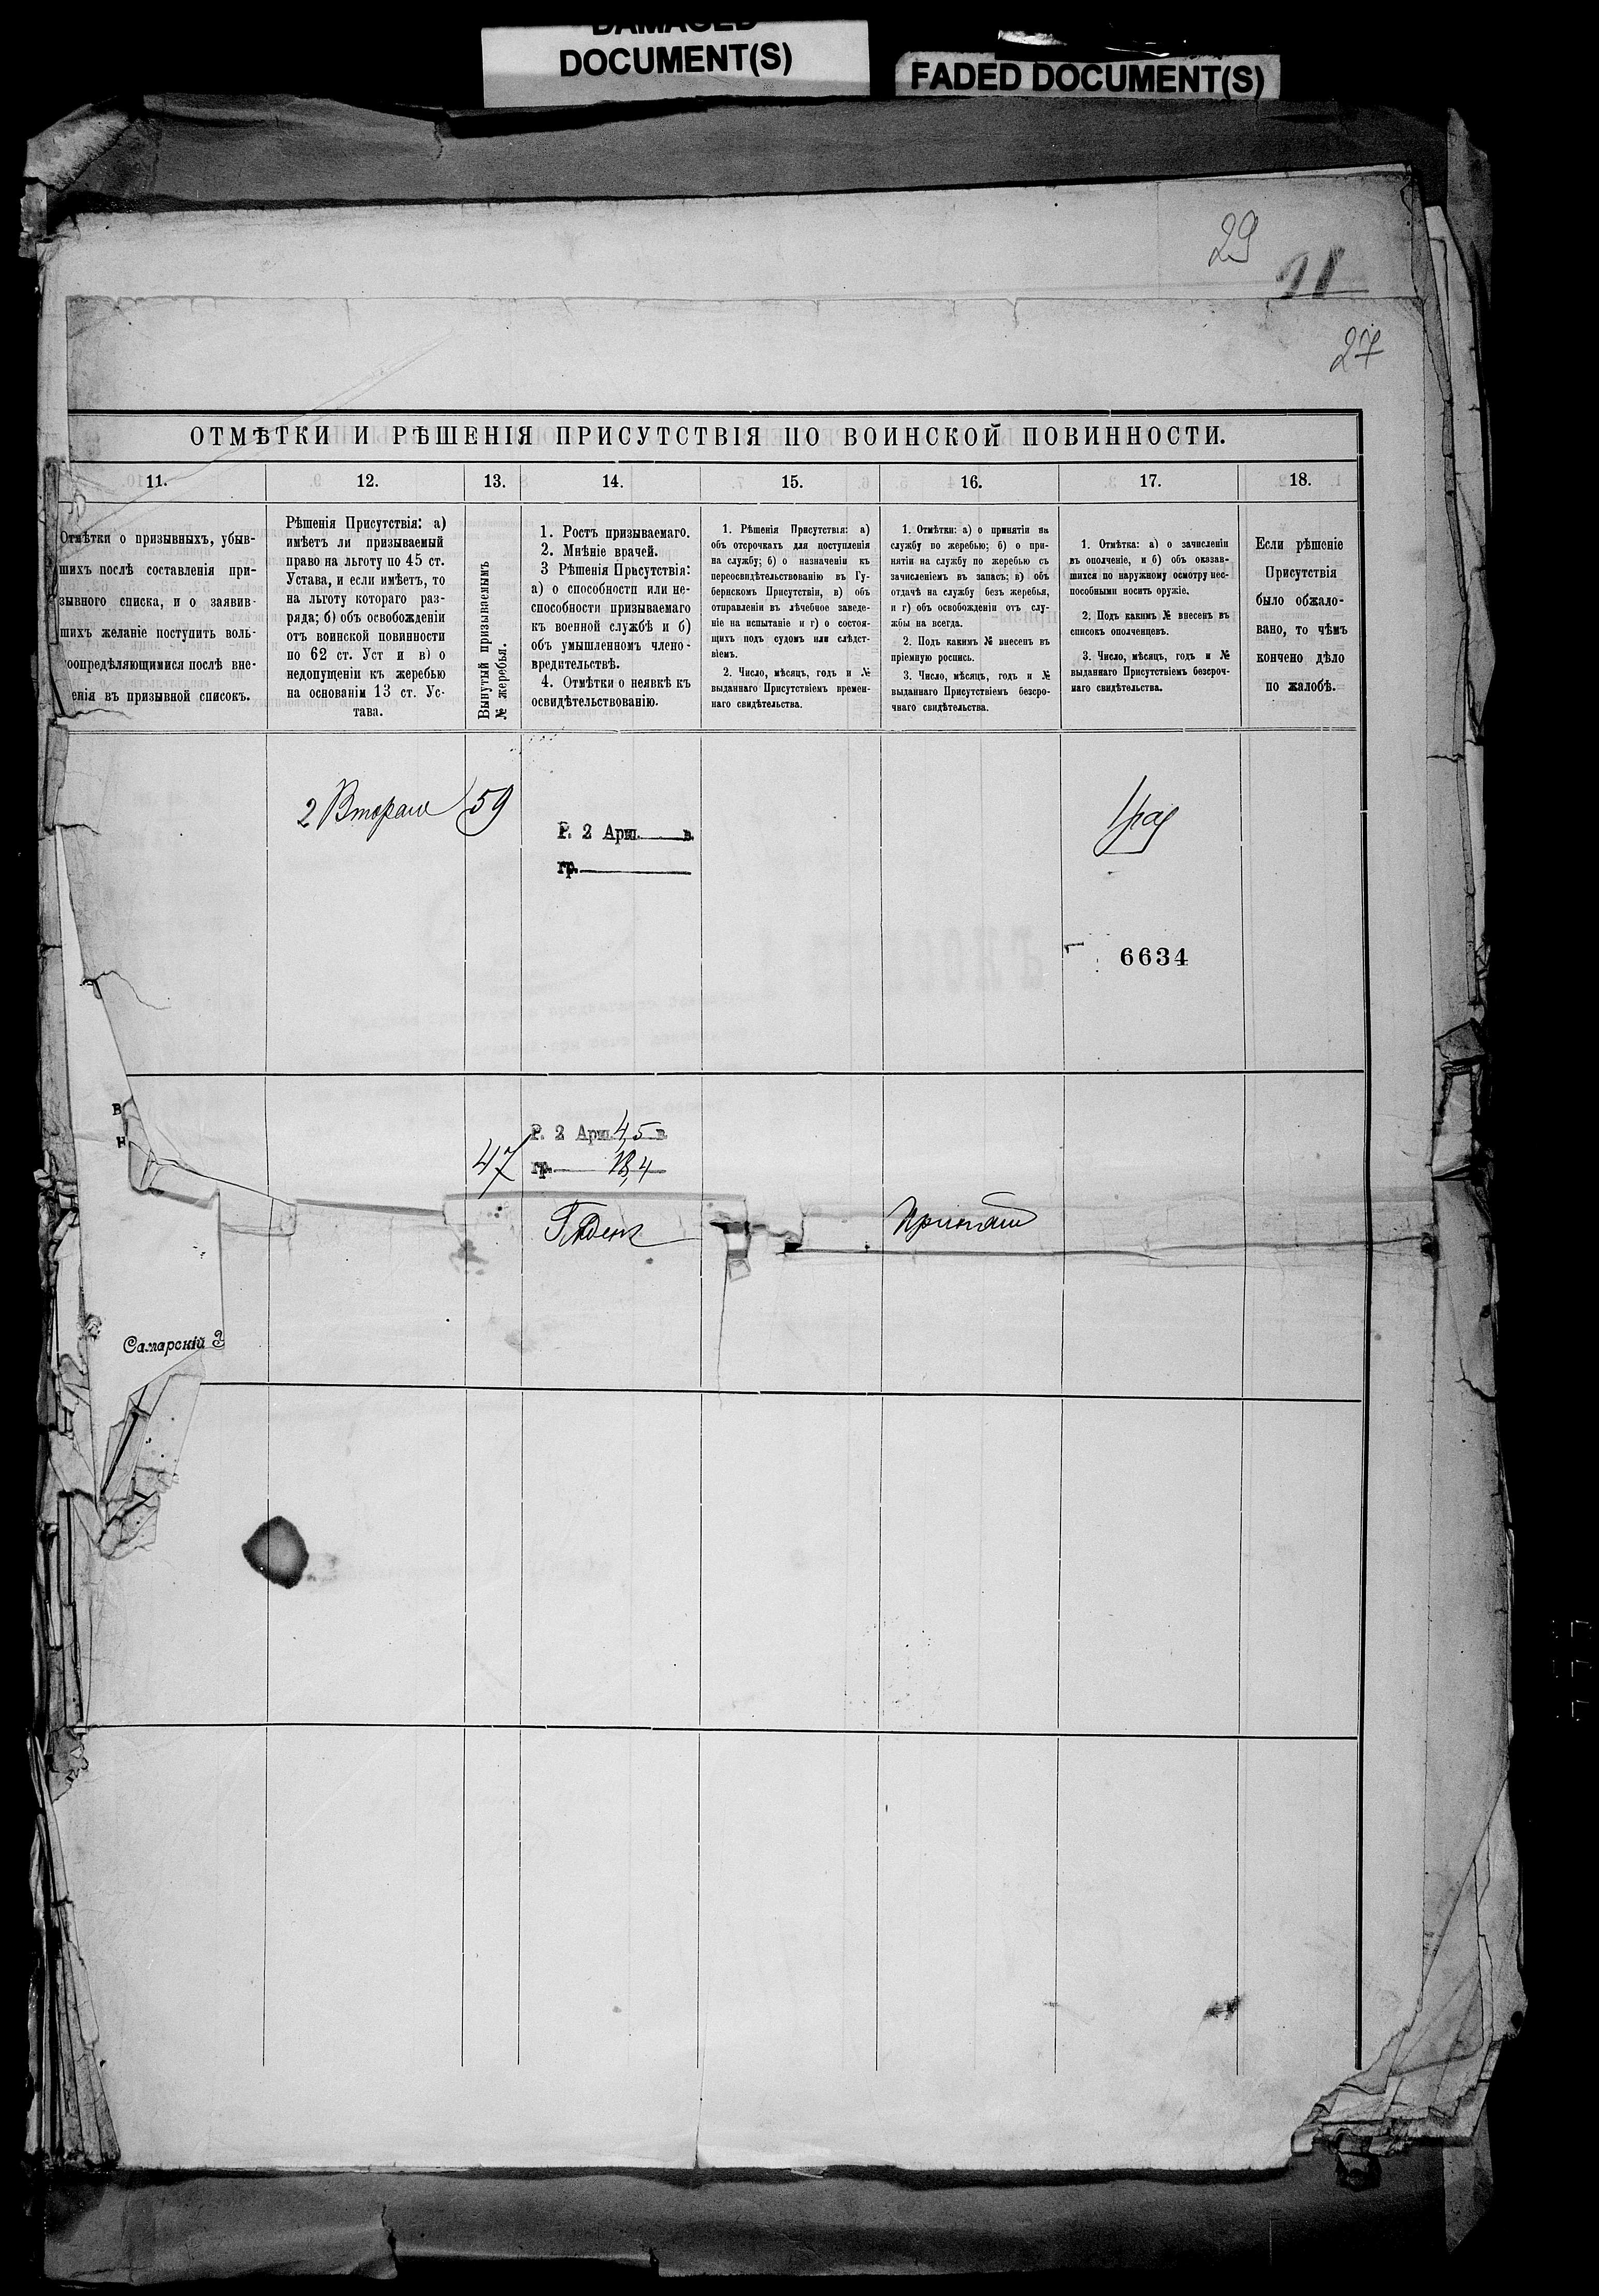 DAMAGED
DOCUMENT(S)
FADED DOCUMENT(S)
29
27
ОТМѢТКИ И РѢШЕНІЯ ПРИСУТСТВІЯ ПО ВОИНСКОЙ ПОВИННОСТИ.
11.
12.
13.
14.
15.
16.
17.
18.
Отмѣтки о призывныхъ, убыв-
шихъ послѣ составленія при-
зывного списка, и о заявив-
шихъ желаніе поступить воль-
ноопредѣляющимися послѣ вне-
сенія въ призывной списокъ.
Рѣшенія Присутствія: а)
имѣетъ ли призываемый
право на льготу по 45 ст.
Устава, и если имѣетъ, то
на льготу котораго раз-
ряда; б) объ освобожденіи
отъ воинской повинности
по 62 ст. Уст и в) о
недопущеніи къ жеребью
на основаніи 13 ст. Ус-
тава.
Вынутый призываемымъ
№ жеребья.
1. Ростъ призываемаго.
2. Мнѣніе врачей.
3 Рѣшенія Присутствія:
а) о способности или не-
способности призываемаго
къ военной службѣ и б)
объ умышленномъ члено-
вредительствѣ.
4. Отмѣтки о неявкѣ къ
освидѣтельствованію.
1. Рѣшенія Присутствія: а)
объ отсрочкахъ для поступленія
на службу; б) о назначеніи къ
переосвидѣтельствованію въ Гу-
бернскомъ Присутствіи, в) объ
отправленіи въ лѣчебное заведе-
ніе на испытаніе и г) о состоя-
щихъ подъ судомъ или слѣдст-
віемъ.
2. Число, мѣсяцъ, годъ и №
выданнаго Присутствіемъ времен-
наго свидѣтельства.
1. Отмѣтки: а) о принятіи на
службу по жеребью; б) о при-
нятіи на службу по жеребью съ
зачисленіемъ въ запасъ; в) объ
отдачѣ на службу безъ жеребья,
и г) объ освобожденіи отъ слу-
жбы на всегда.
2. Подъ какимъ № внесенъ въ
пріемную роспись.
3. Число, мѣсяцъ, годъ и №
выданнаго Присутствіемъ безсро-
чнаго свидѣтельства.
1. Отмѣтка: а) о зачисленіи
въ ополченіе, и б) объ оказав-
шихся по наружному осмотру нес-
пособными носить оружіе.
2. Подъ какимъ № внесенъ въ
списокъ ополченцевъ.
3. Число, мѣсяцъ, годъ и №
выданнаго Присутствіемъ безсроч-
наго свидѣтельства.
Если рѣшеніе
Присутствія
было обжало-
вано, то чѣмъ
кончено дѣло
по жалобѣ.
2 Втораго
59
Р. 2 Арш. в.
гр.
6634
в
н
47
Р. 2 Арш. 4,5 в.
гр. 18,4
Годенъ
Принятъ
Самарскій З